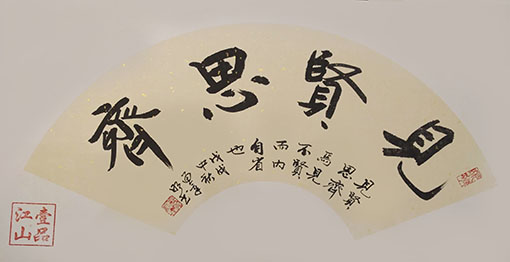 見賢思齊
見賢
思齊
焉見
不賢
而内
自省
也
戊戌年秋
壹品
江山